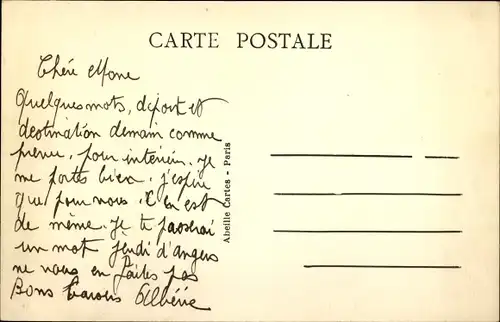 CARTE POSTALE
Chère Mone
Quelques mots, départ et
destination demain comme
prévu, pour intérieur. Je
me portes bien. j'espère
que pour vous. il en est
de même. Je te passerai
un mot jeudi d'angers
ne vous en faites pas
Bons baisers
Abeille Cartes - Paris